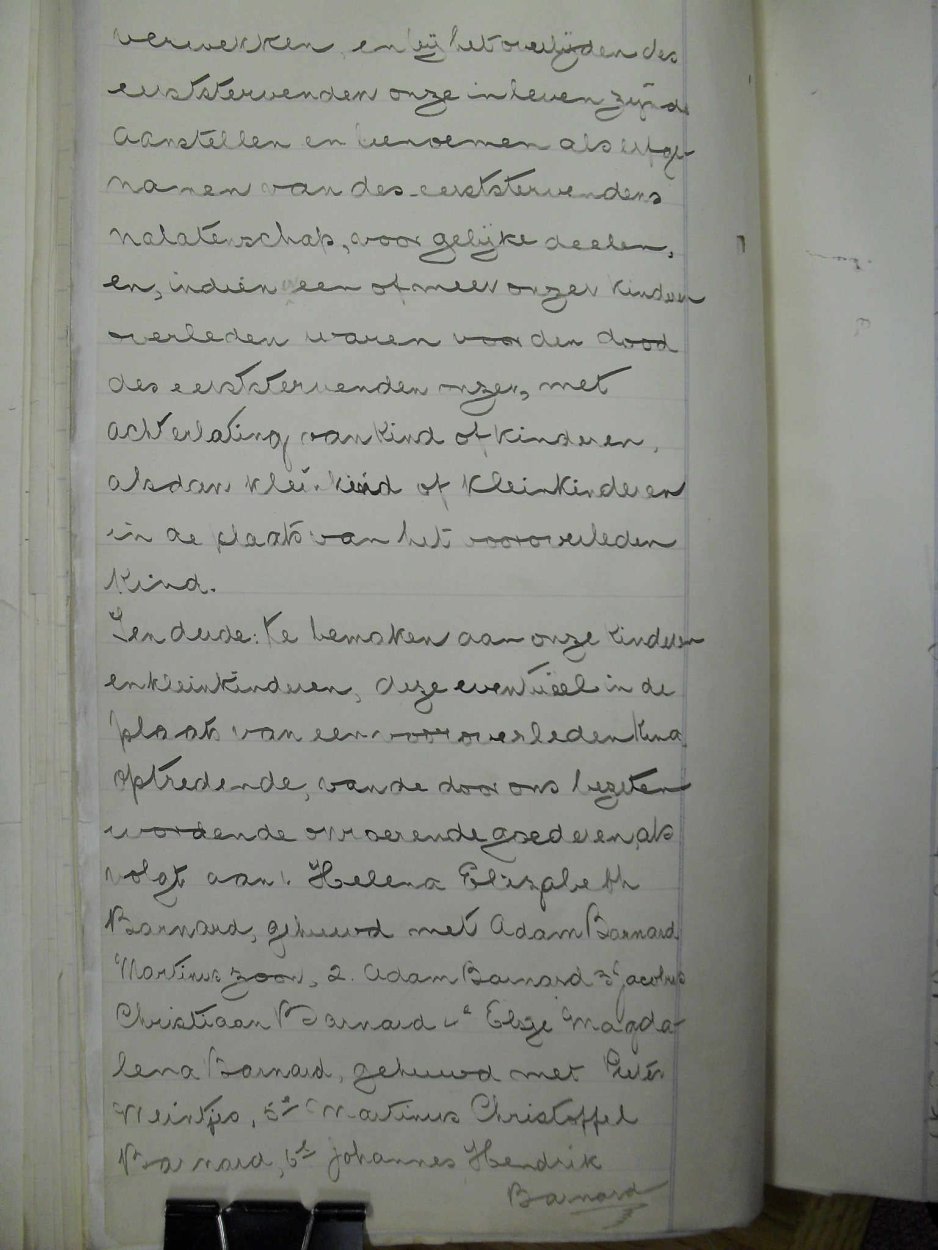 verwekken, en bij het overlijden des
eerststervenden onze in leven zijnde
aanstellen en benoemen als erfge-
namen van des eerststervendens
nalatenschap, voor gelijke deelen,
en, indien een of meer onzer kinderen
overleden waren voor den dood
des eerststervenden onzer, met
achterlating van kind of kinderen,
alsdan kleinkind of kleinkinderen
in de plaats van het vooroverleden
kind.
Ten derde: te bemaken aan onze kinderen
en kleinkinderen, deze eventueel in de
plaats van een vooroverleden kind
optredende, van de door ons bezeten
wordende onroerende goederen, als
volgt aan: Helena Elizabeth
Barnard, gehuwd met Adam Barnard
Martinus zoon, 2. Adam Barnard 3e Jacobus
Christiaan Barnard 4e Elsze Magda-
lena Barnard, gehuwd met Pieter
Meintjes, 5de Martinus Christoffel
Barnard, 6de Johannes Hendrik
Barnard